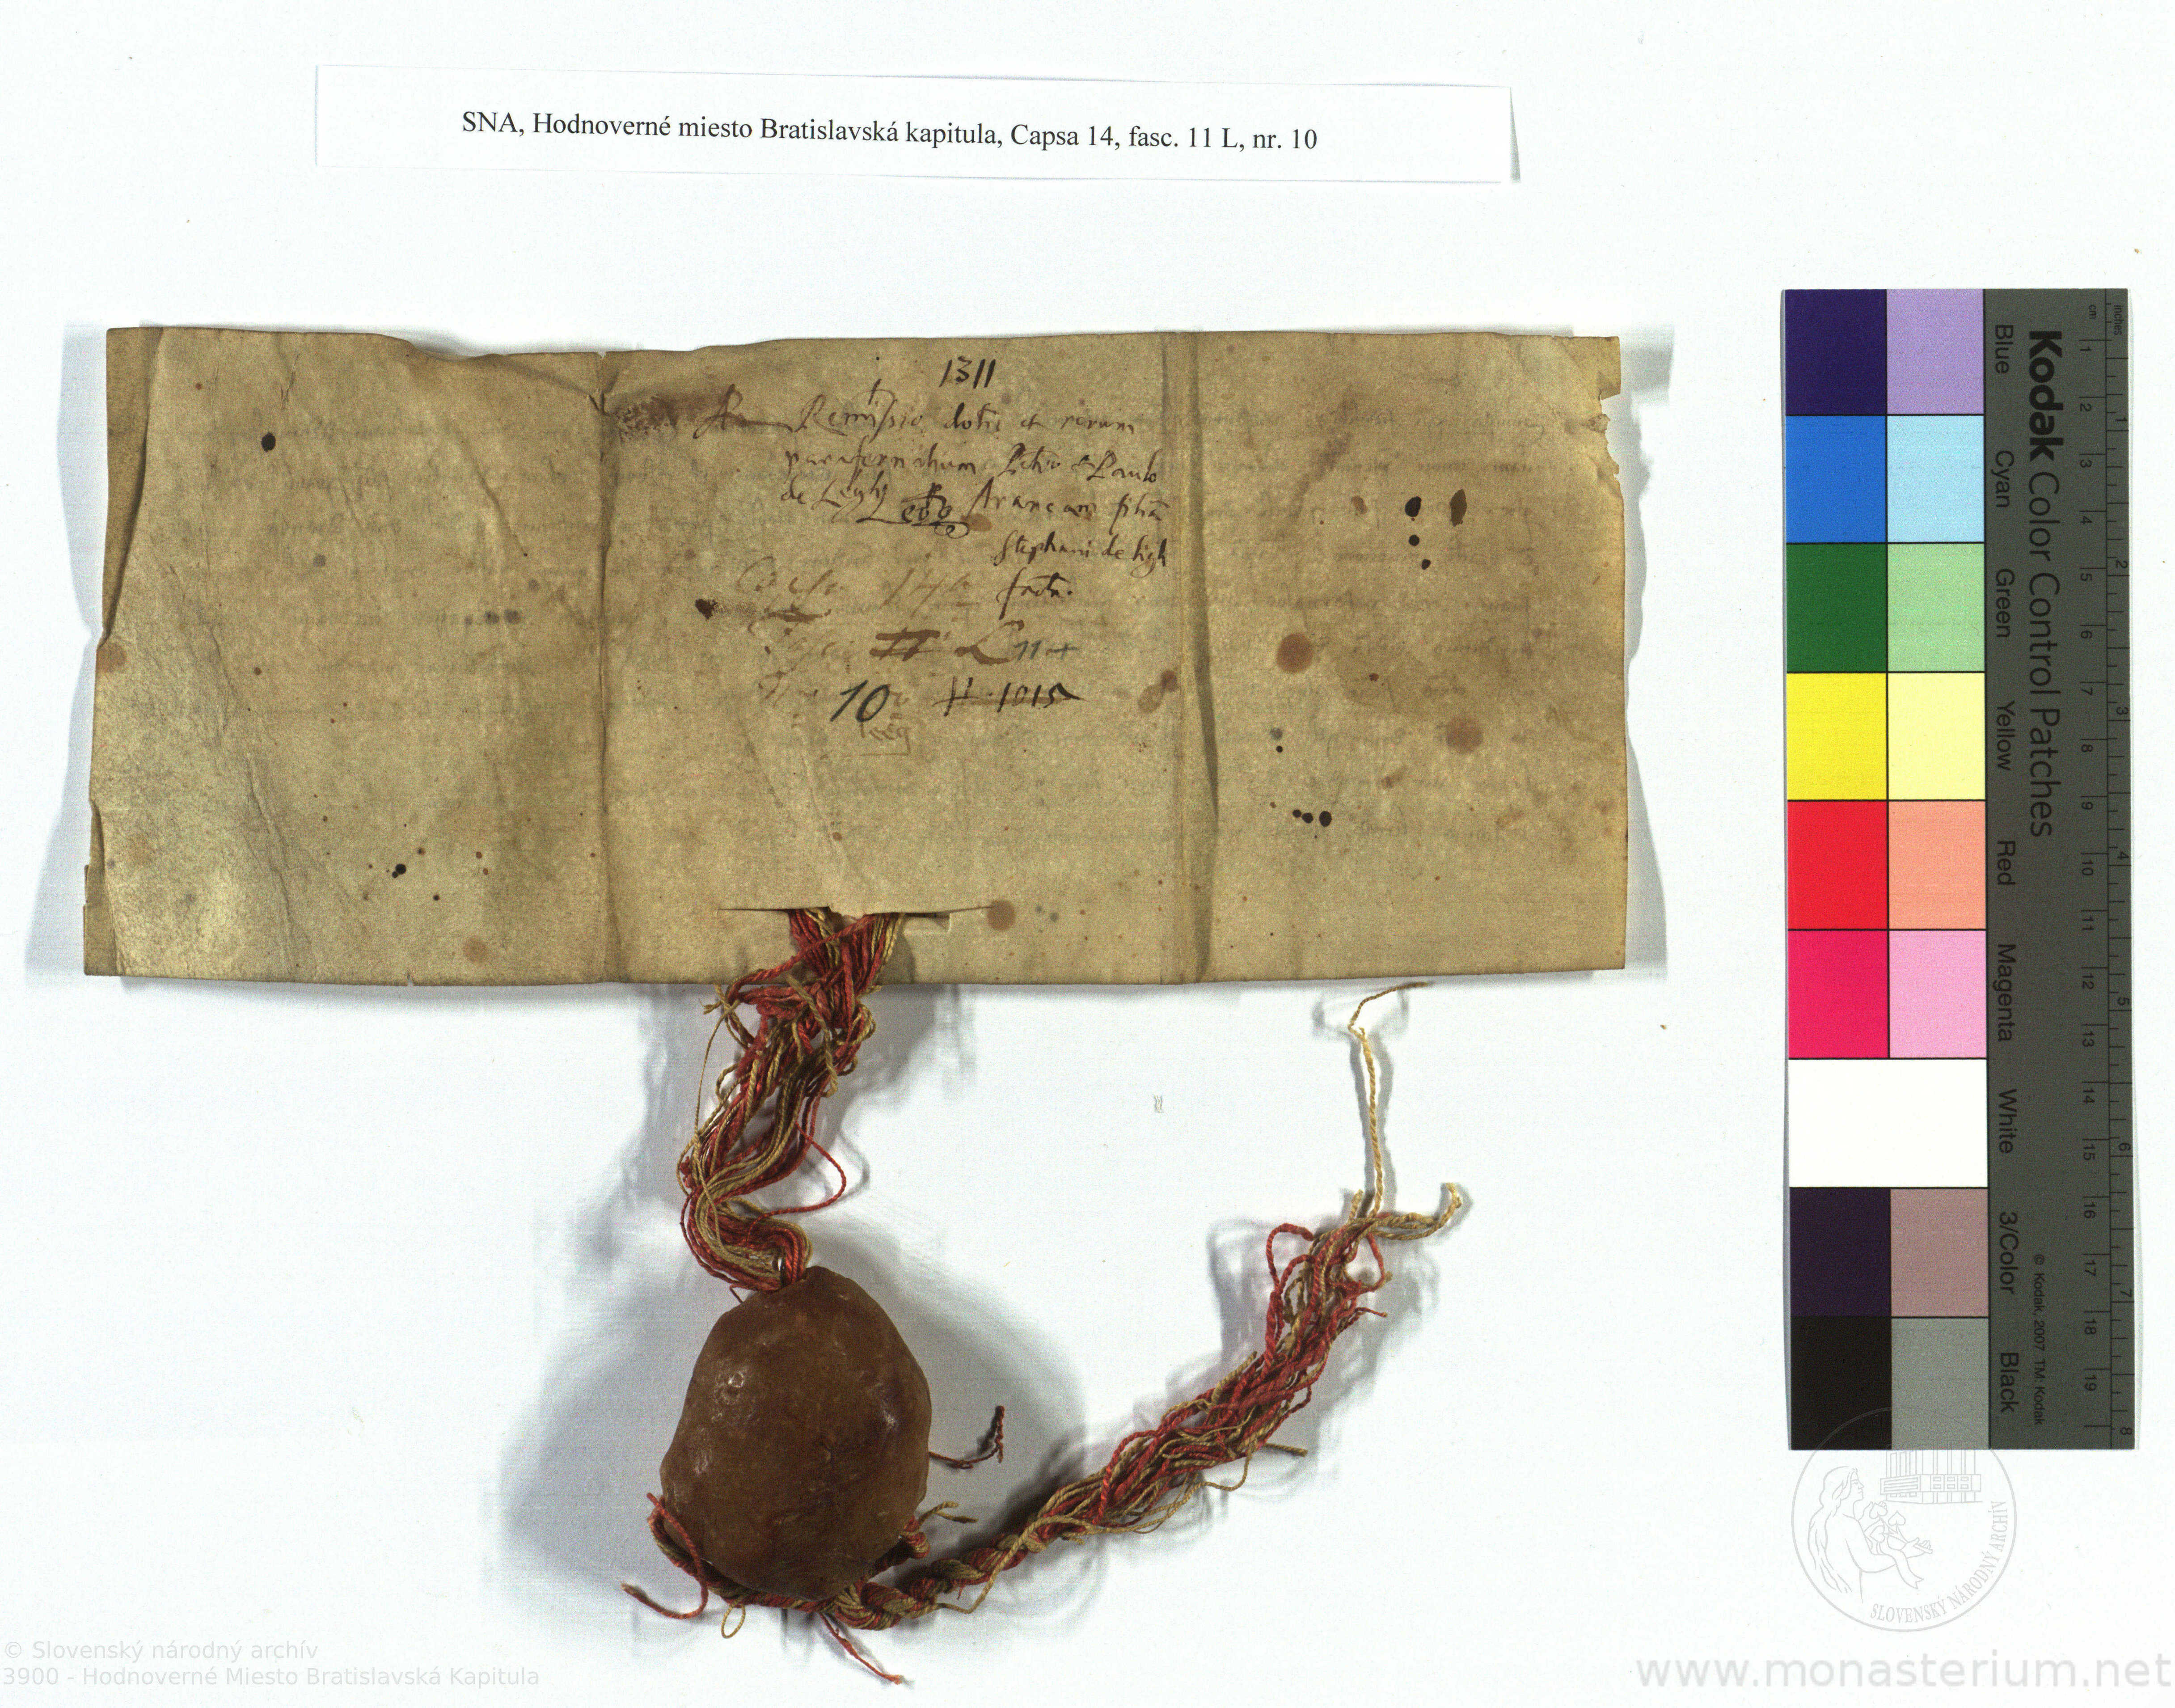 SNA, Hodnoverné miesto Bratislavská kapitula, Capsa 14, fasc. 11 L, nr. 10
1311
Remissio dotis et rerum
parafernalium Petro & Paulo
de Légh filia
Stephani de ligh
facta.
14
L 11
10 1015
leeg
Kodak Color Control Patches
Blue Cyan Green Yellow Red Magenta White 3/Color Black
© Kodak, 2007 TM: Kodak
cm 1 2 3 4 5 6 7 8 9 10 11 12 13 14 15 16 17 18 19
inches 1 2 3 4 5 6 7 8
SLOVENSKÝ NÁRODNÝ ARCHÍV
© Slovenský národný archív
3900 - Hodnoverné Miesto Bratislavská Kapitula
www.monasterium.net